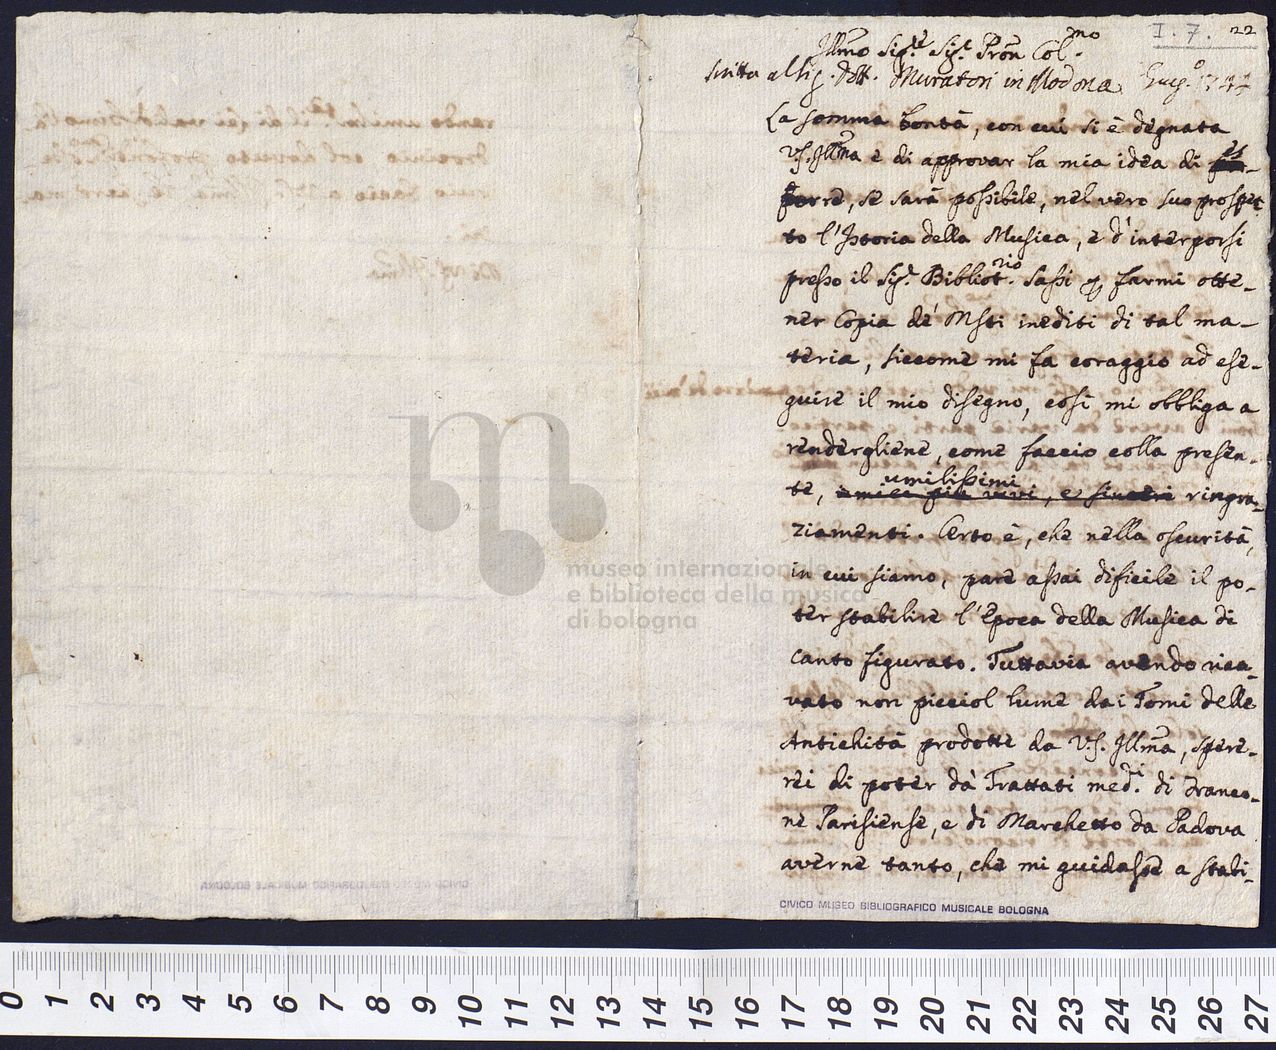 I. 7. 22
Illmo Sigre Sigr Pron Colmo
scritta al Sig. Dott. Muratori in Modona
La somma bontà, con cui si è degnata
V.S. Illma e di approvar la mia idea di es-
porre, se sarà possibile, nel vero suo prospet
to l'Istoria della Musica, e d'interporsi
presso il Sigr Bibliotrio. Sassi p farmi otte-
ner Copia de' Msti inediti di tal ma-
teria, siccome mi fa coraggio ad ese-
guire il mio disegno, così mi obbliga a
rendergliene, come faccio colla presen-
te, umilissimi ringra-
ziamenti. Certo è, che nella oscurità,
in cui siamo, pare assai dificile il po-
ter stabilire l'Epoca della Musica di
Canto figurato. Tuttavia avendo rica-
vato non picciol lume dai Tomi delle
Antichità prodotte da V.S. Illma, spere-
rei di poter dà Trattati med.di di Franco-
ne Parisiense, e di Marchetto da Padova
averne tanto, che mi guidasse a stabi-
CIVICO MUSEO BIBLIOGRAFICO MUSICALE BOLOGNA
museo internazionale
e biblioteca della musica
di bologna
0 1 2 3 4 5 6 7 8 9 10 11 12 13 14 15 16 17 18 19 20 21 22 23 24 25 26 27